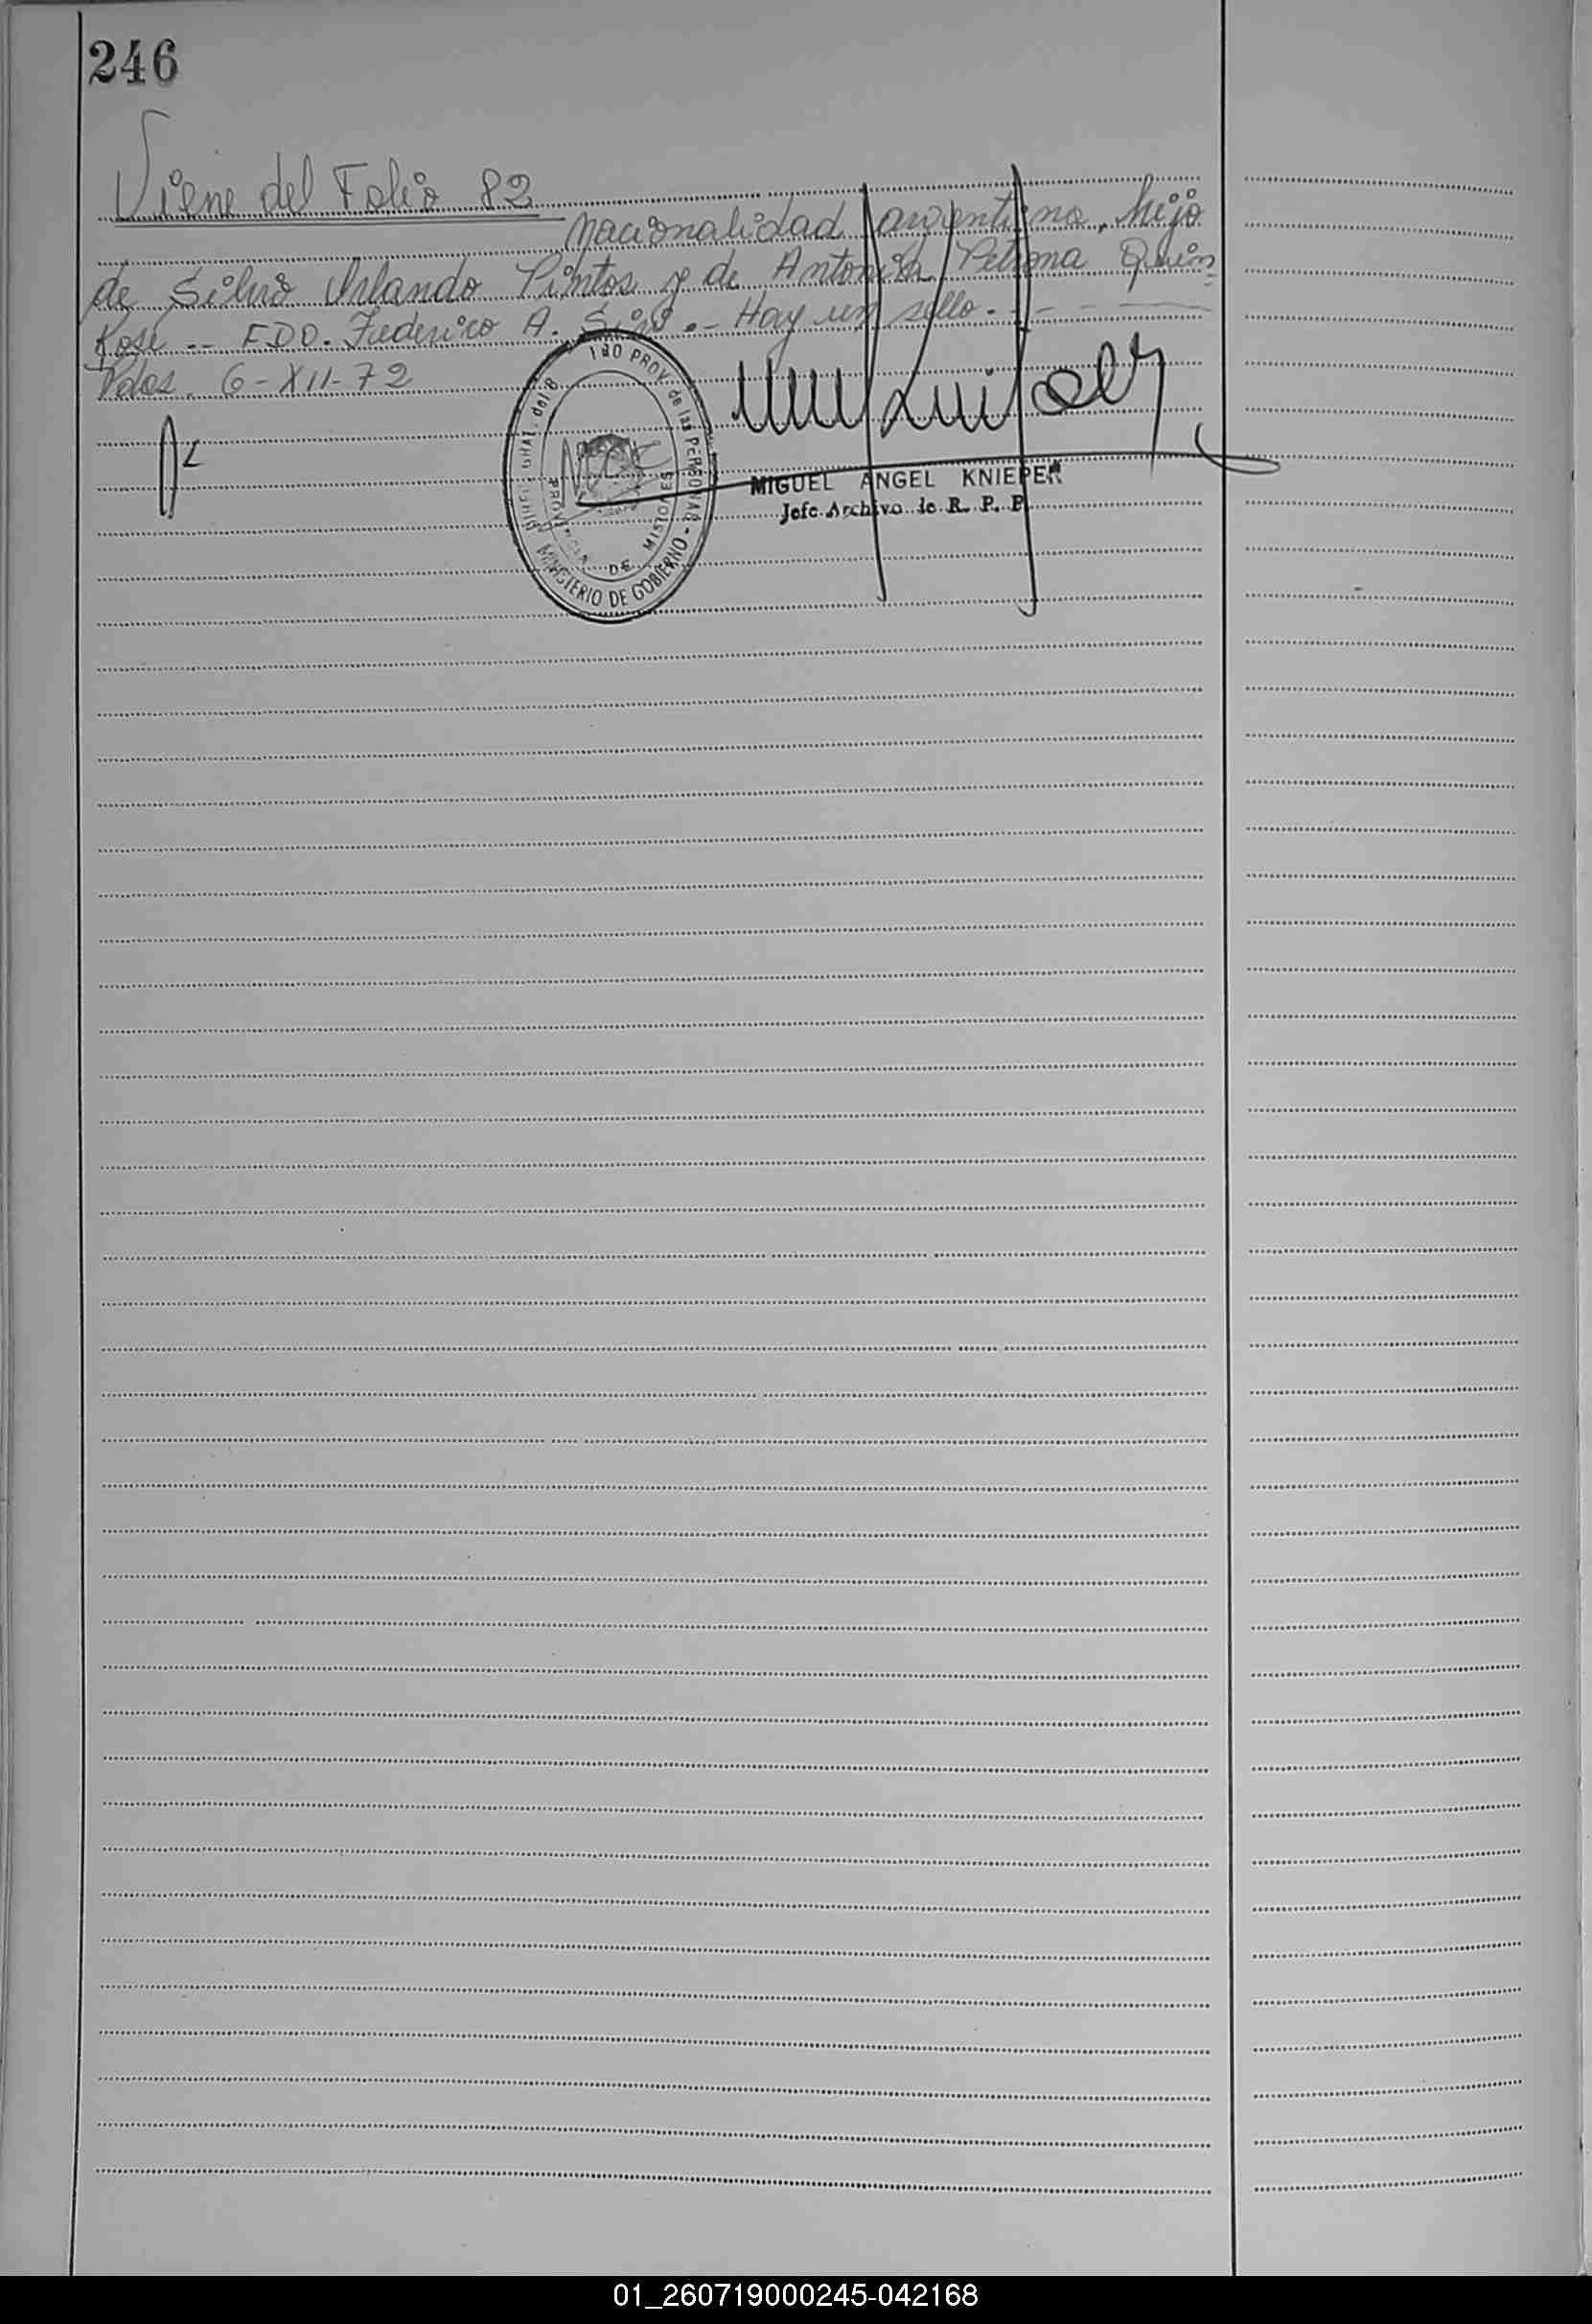 246
Viene del Folio 82
nacionalidad argentina, hijo
de Silvio Orlando Pintos y de Antonia Petrona Quin=
Rose -- FDO. Federico A. Hay un sello.-
Pdas. 6-XII-72
PROV. de las PERSONAS - MINISTERIO DE GOBIERNO
PROVINCIA DE MISIONES
MIGUEL ANGEL KNIEPER
Jefe Archivo de R. P. P.
01_260719000245-042168